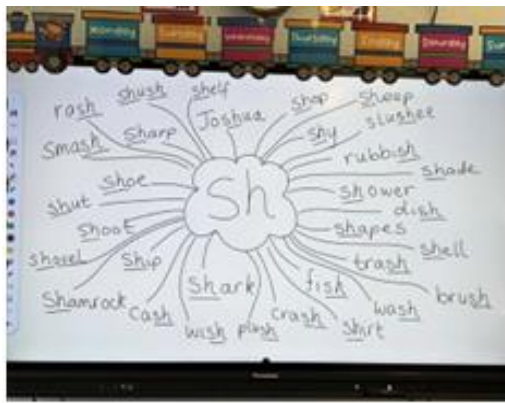 Monday
Tuesday
Wednesday
Thursday
Friday
Saturday
Sun
rash
shush
shelf
Joshua
shop
Sheep
slushee
Smash
Sharp
shy
rubbish
shade
shoe
Sh
shower
shut
dish
Shoot
shapes
shell
shovel
Ship
trash
Shamrock
Shark
fish
brush
cash
wash
wish
plush
crash
Shirt